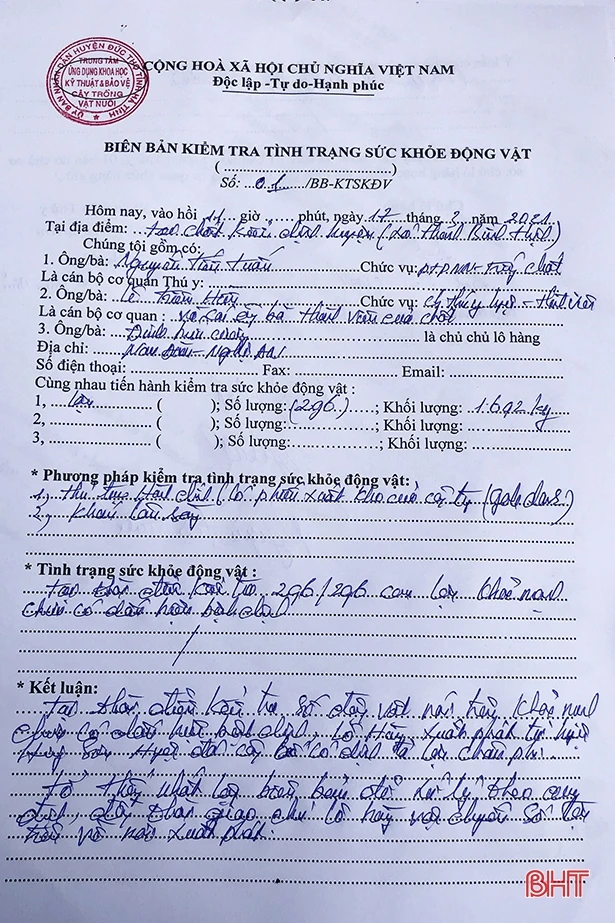 ỦY BAN NHÂN DÂN HUYỆN ĐỨC THỌ TỈNH HÀ TĨNH
TRUNG TÂM
ỨNG DỤNG KHOA HỌC
KỸ THUẬT & BẢO VỆ
CÂY TRỒNG
VẬT NUÔI
CỘNG HOÀ XÃ HỘI CHỦ NGHĨA VIỆT NAM
Độc lập -Tự do-Hạnh phúc
BIÊN BẢN KIỂM TRA TÌNH TRẠNG SỨC KHỎE ĐỘNG VẬT
(..............................................)
Số: 01 /BB-KTSKĐV
Hôm nay, vào hồi 11 giờ ...... phút, ngày 17 tháng 2 năm 2021
Tại địa điểm: tại chốt kiểm dịch huyện (xã Thanh Bình Thịnh)
Chúng tôi gồm có:
1. Ông/bà: Nguyễn Tiến Tuấn Chức vụ:
Là cán bộ cơ quan Thú y:
2. Ông/bà: Lê Chức vụ:
Là cán bộ cơ quan : thành viên của chốt
3. Ông/bà: Đinh hữu là chủ chủ lô hàng
Địa chỉ: Nam Đàn - Nghệ An
Số điện thoại: Fax: Email:
Cùng nhau tiến hành kiểm tra sức khỏe động vật :
1, lợn ( ); Số lượng: (296) ; Khối lượng: 1.692 kg
2, ( ); Số lượng: ; Khối lượng:
3, ( ); Số lượng: ; Khối lượng:
* Phương pháp kiểm tra tình trạng sức khỏe động vật:
1, thủ tục hành chính (có phiếu xuất kho của công ty
2, Khám lâm sàng
* Tình trạng sức khỏe động vật :
Tại thời điểm kiểm tra 296/296 con lợn khỏe mạnh
chưa có dấu hiệu bệnh dịch
* Kết luận:
Tại thời điểm kiểm tra số động vật nói trên khỏe mạnh
chưa có dấu hiệu bệnh dịch. Lô hàng xuất phát từ huyện
Hương Sơn Huyện đã công bố có dịch tả lợn châu phi.
Tổ thống nhất lập biên bản để xử lý theo quy
định, giao chủ lô hàng vận chuyển số lợn
trên về nơi xuất phát.
BHT